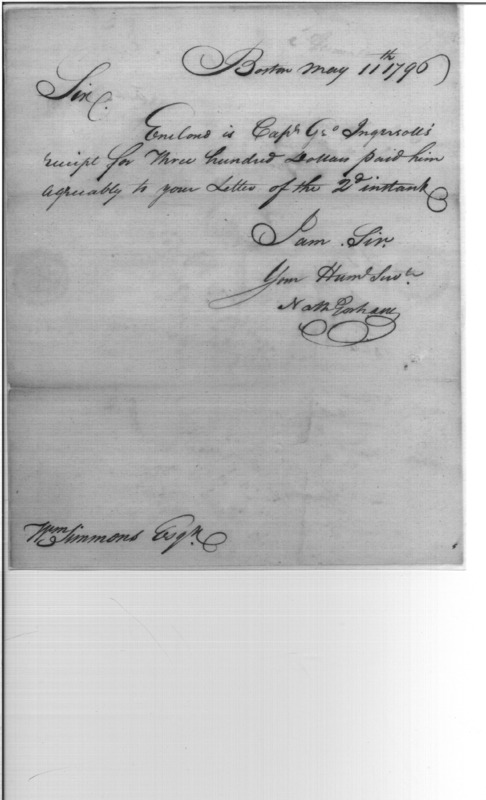 Boston May 11th 1796
Sir
Enclosed is Capt Geo Ingersoll's
receipt for Three hundred Dollars paid him
agreeably to your Letter of the 2d instant
I am Sir
Your Huml Servt
Nath Gorham
Wm Simmons Esqr